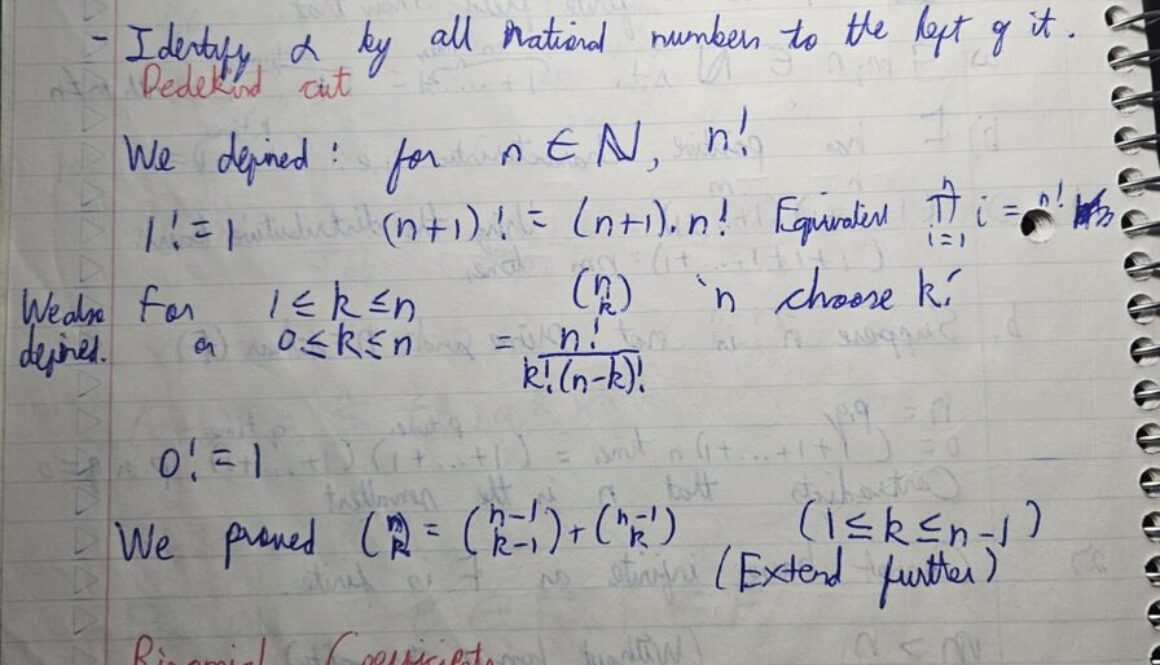 - Identify α by all rational numbers to the left of it.
Dedekind cut
We defined : for n ∈ ℕ, n!
1! = 1 (n+1)! = (n+1). n! Equivalent ∏_{i=1}^{n} i = n!
We also defined. For 1 ≤ k ≤ n (n k) 'n choose k'
or 0 ≤ k ≤ n = n! / k!(n-k)!
0! = 1
We proved (n k) = (n-1 k-1) + (n-1 k) (1 ≤ k ≤ n-1)
(Extend further)
Binomial Coefficients